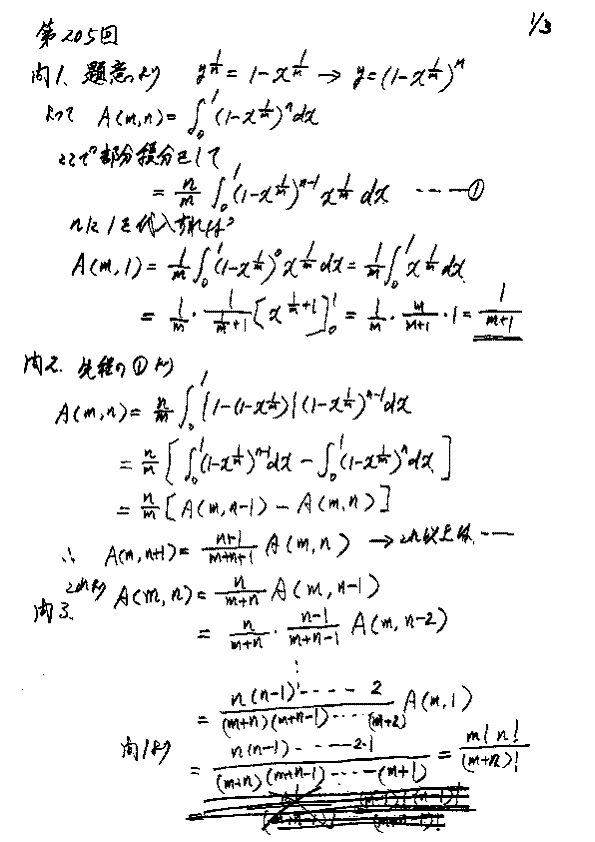 第205回
1/3
問1. 題意より y^{1/n} = 1 - x^{1/m} → y = (1 - x^{1/m})^n
よって A(m,n) = ∫_0^1 (1 - x^{1/m})^n dx
ここで部分積分をして
= n/m ∫_0^1 (1 - x^{1/m})^{n-1} x^{1/m} dx ----①
nに1を代入すれば
A(m,1) = 1/m ∫_0^1 (1 - x^{1/m})^0 x^{1/m} dx = 1/m ∫_0^1 x^{1/m} dx
= 1/m · 1/(1/m + 1) [x^{1/m + 1}]_0^1 = 1/m · m/(m+1) · 1 = 1/(m+1)
問2. 先程の①より
A(m,n) = n/m ∫_0^1 {1 - (1 - x^{1/m})}(1 - x^{1/m})^{n-1} dx
= n/m [∫_0^1 (1 - x^{1/m})^{n-1} dx - ∫_0^1 (1 - x^{1/m})^n dx]
= n/m [A(m,n-1) - A(m,n)]
∴ A(m,n+1) = (n+1)/(m+n+1) A(m,n) →
問3. A(m,n) = n/(m+n) A(m,n-1)
= n/(m+n) · (n-1)/(m+n-1) A(m,n-2)
⋮
= n(n-1)·----2 / (m+n)(m+n-1)----(m+2) A(m,1)
問1より = n(n-1)-----2·1 / (m+n)(m+n-1)----(m+1) = m!n!/(m+n)!